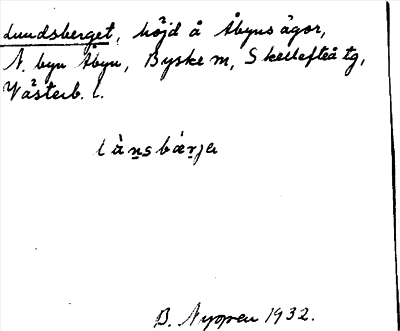 Lundsberget, höjd å Åbyns ägor,
N. byn Åbyn, Byske sn, Skellefteå tg,
Västerb. l.
lànsbærja
B. Nyppen 1932.